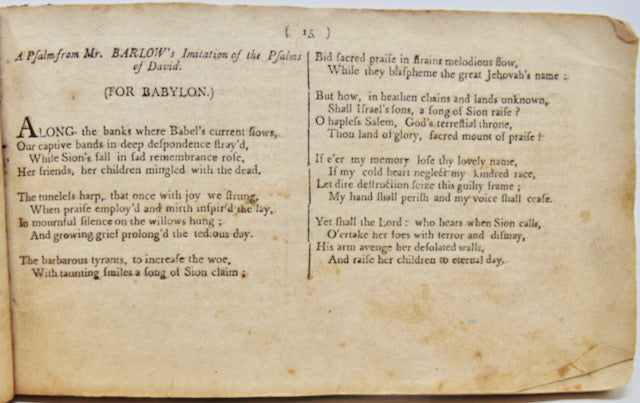 ( 15 )
A Psalm from Mr. BARLOW's Imitation of the Psalms
of David.
(FOR BABYLON.)
ALONG the banks where Babel's current flows,
Our captive bands in deep despondence stray'd,
While Sion's fall in sad remembrance rose,
Her friends, her children mingled with the dead.
The tuneless harp, that once with joy we strung,
When praise employ'd and mirth inspir'd the lay,
In mournful silence on the willows hung ;
And growing grief prolong'd the tedious day.
The barbarous tyrants, to increase the woe,
With taunting smiles a song of Sion claim ;
Bid sacred praise in strains melodious flow,
While they blaspheme the great Jehovah's name ;
But how, in heathen chains and lands unknown,
Shall Israel's sons, a song of Sion raise ?
O hapless Salem, God's terrestial throne,
Thou land of glory, sacred mount of praise !
If e'er my memory lose thy lovely name,
If my cold heart neglect my kindred race,
Let dire destruction seize this guilty frame ;
My hand shall perish and my voice shall cease.
Yet shall the Lord : who hears when Sion calls,
O'ertake her foes with terror and dismay,
His arm avenge her desolated walls,
And raise her children to eternal day.